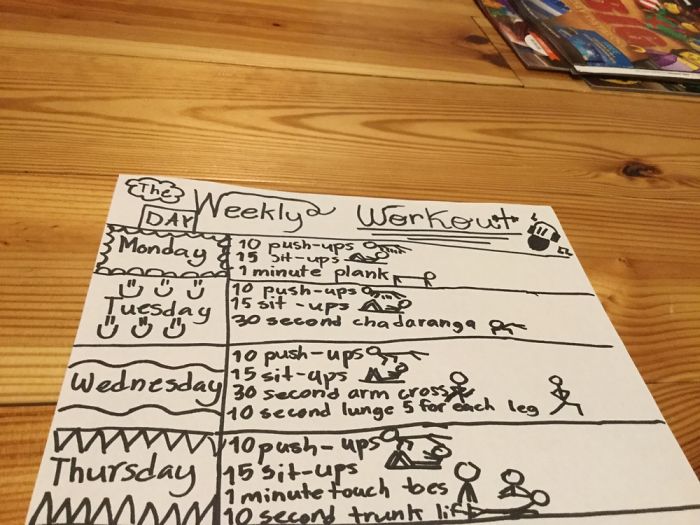 The Weekly Workout
DAY
Monday
10 push-ups
15 sit-ups
1 minute plank
Tuesday
10 push-ups
15 sit-ups
30 second chadaranga
Wednesday
10 push-ups
15 sit-ups
30 second arm cross
10 second lunge 5 for each leg
Thursday
10 push-ups
15 sit-ups
1 minute touch toes
10 second trunk lift